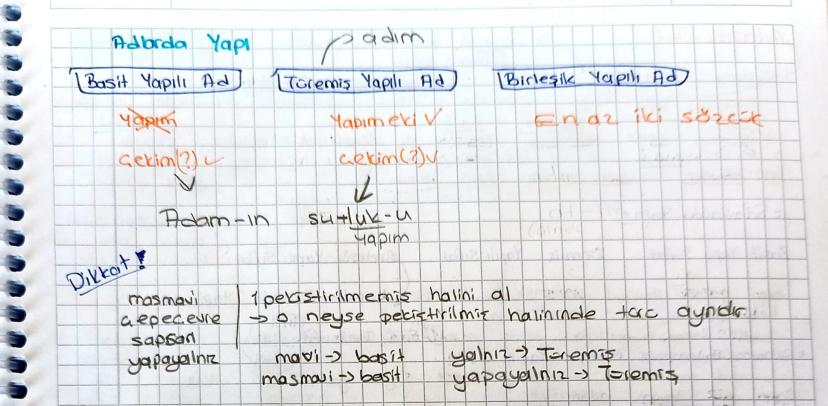 Adlarda Yapı
adım
Basit Yapılı Ad
Türemiş Yapılı Ad
Birleşik Yapılı Ad
yapım
Yapım eki ✓
En az iki sözcük
Çekim(?) ✓
Çekim(?) ✓
Adam-ın
su+luk-u
yapım
Dikkat!
masmavi
pekiştirilmemiş halini al
çepeçevre
→ o neyse pekiştirilmiş halininde tarc aynıdır.
sapsarı
yapayalnız
mavi → basit
yalnız → Türemiş
masmavi → basit
yapayalnız → Türemiş